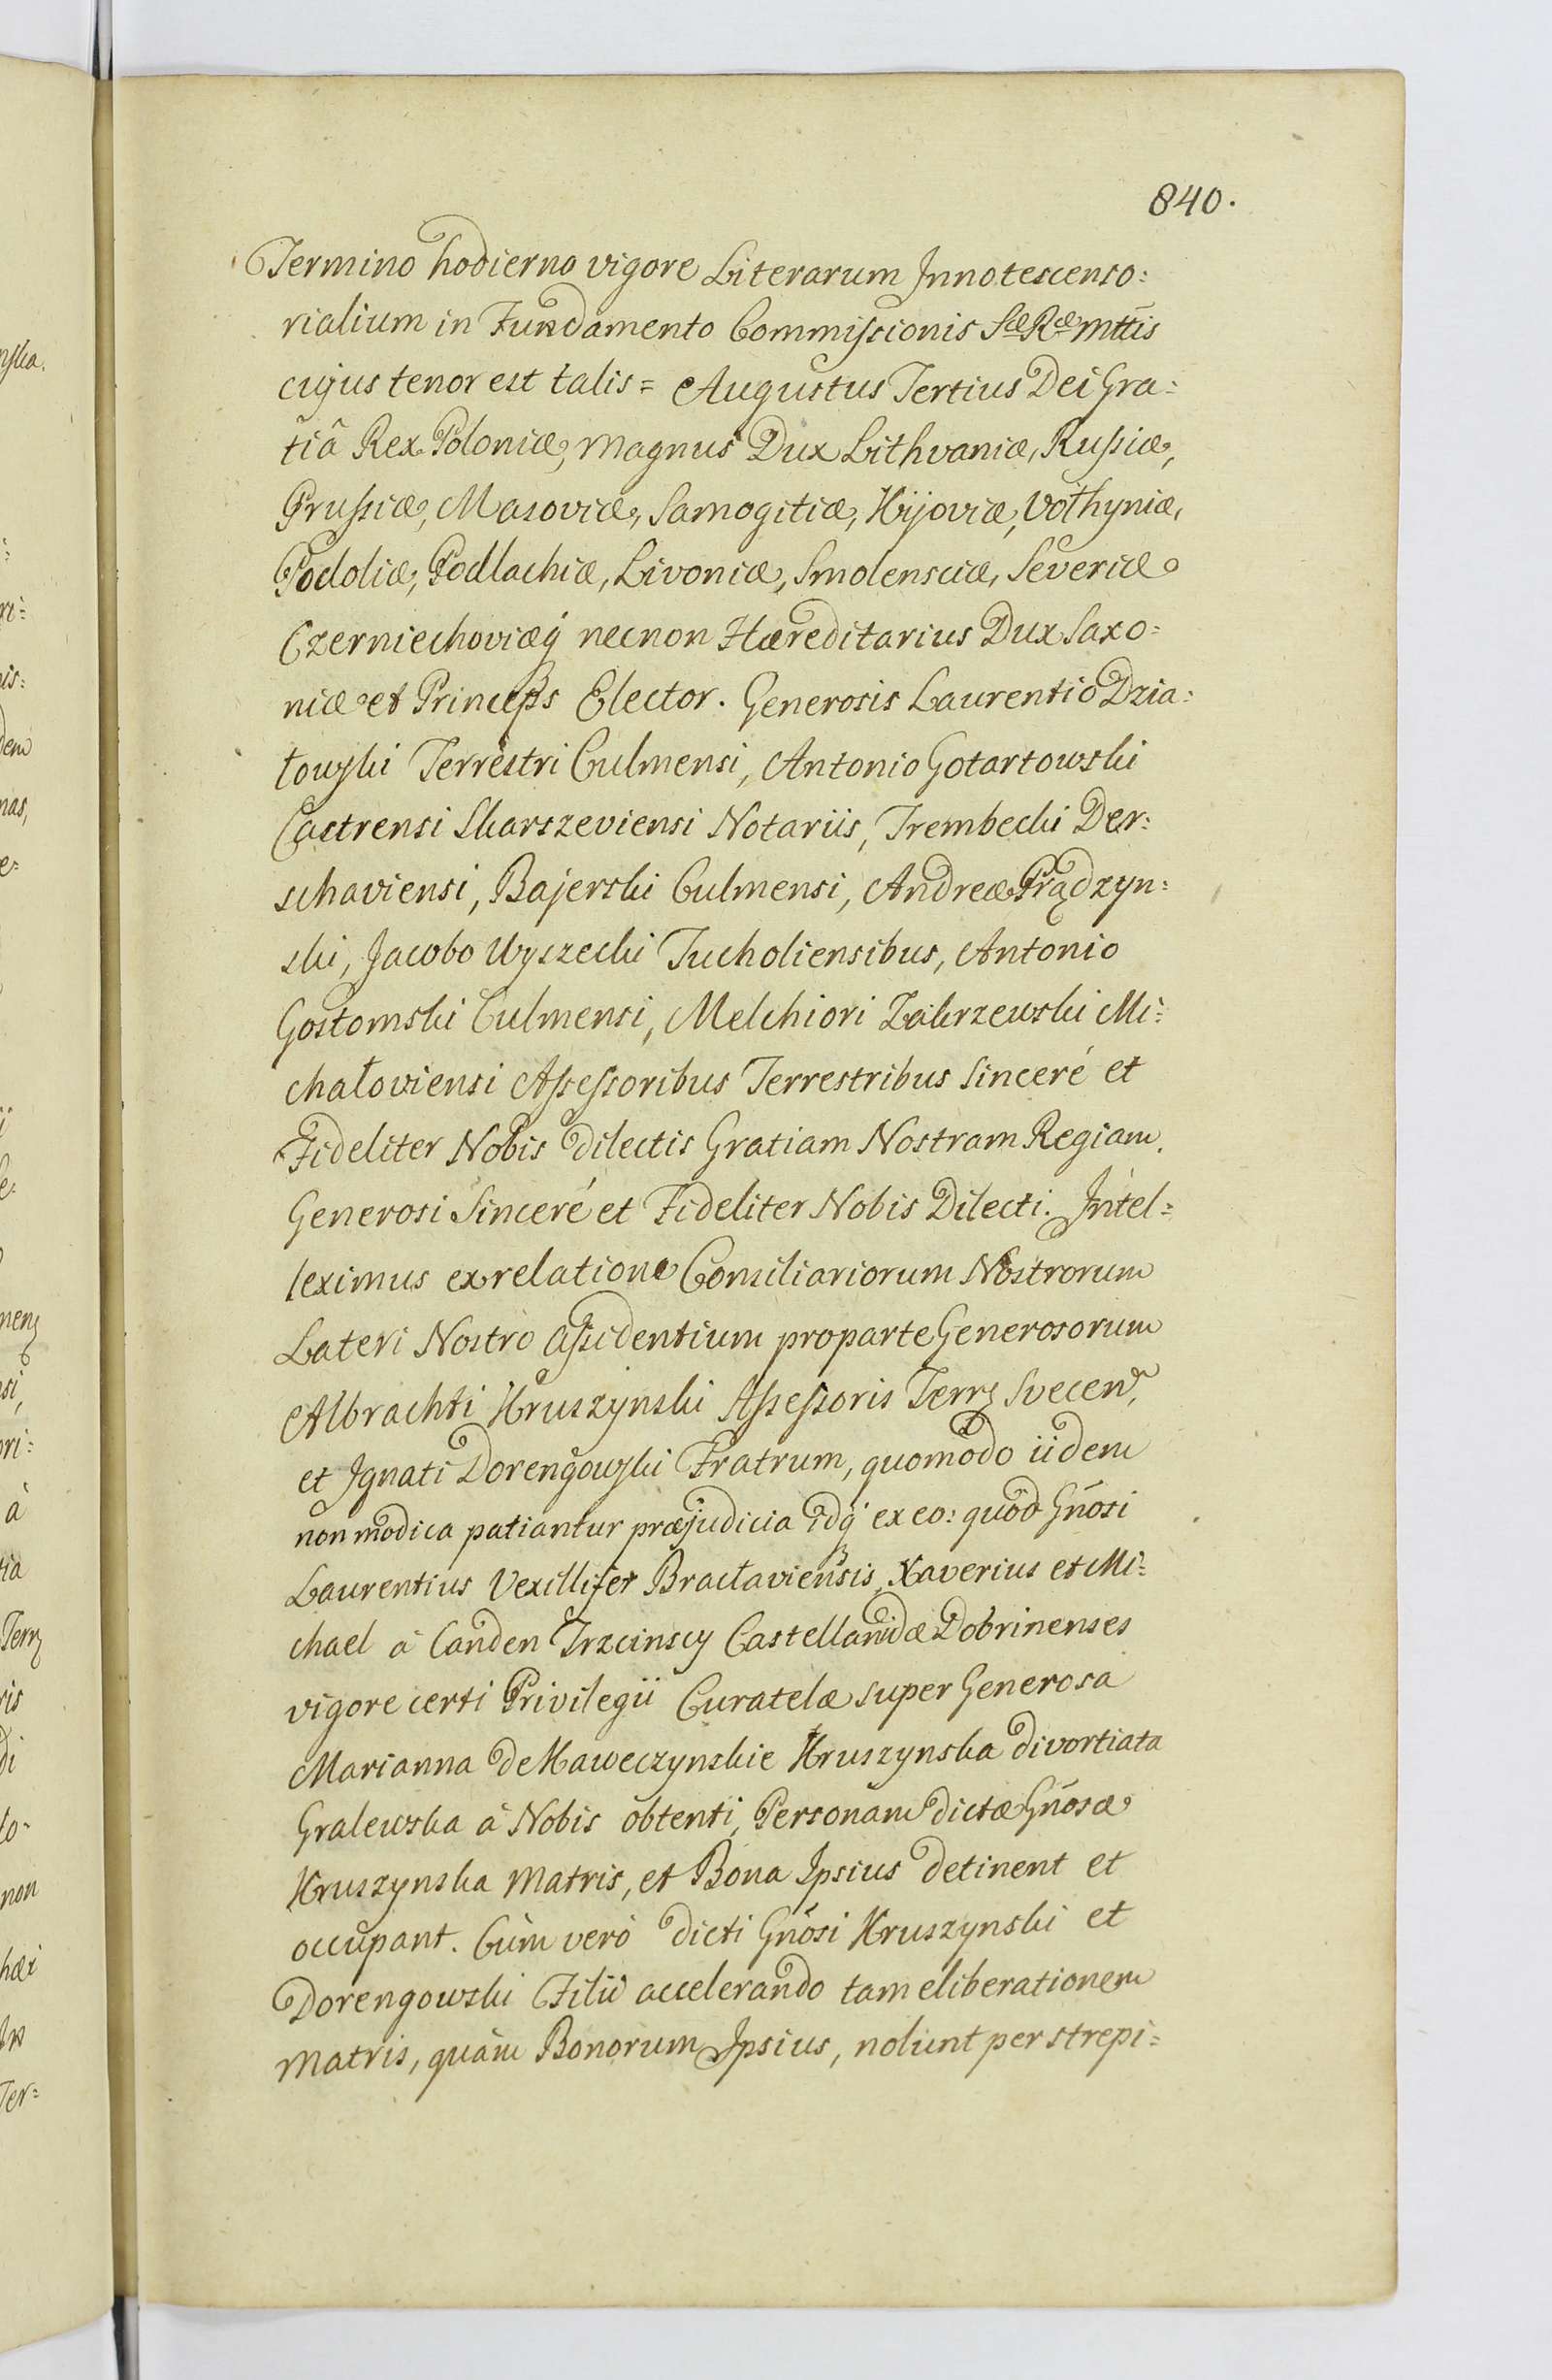 840.
Termino hodierno vigore Literarum Innotescento=
rialium in Fundamento Commissionis Sæ Ræ Mttis
cujus tenor est talis = Augustus Tertius Dei Gra=
tiâ Rex Poloniæ, Magnus Dux Lithvaniæ, Russiæ,
Prussiæ, Masoviæ, Samogitiæ, Kijoviæ, Vołhyniæ,
Podoliæ, Podlachiæ, Livoniæ, Smolensciæ, Severiæ
Czerniechoviæq́ necnon Hæreditarius Dux Saxo=
niæ et Princeps Elector. Generosis Laurentio Dzia=
łowski Terrestri Culmensi, Antonio Gotartowski
Castrensi Skarszeviensi Notariis, Trembecki Der=
schaviensi, Bajerski Culmensi, Andreæ Prądzyn=
ski, Jacobo Wyszecki Tucholiensibus, Antonio
Gostomski Culmensi, Melchiori Zakrzewski Mi=
chałoviensi Assessoribus Terrestribus Sinceré et
Fideliter Nobis dilectis Gratiam Nostram Regiam.
Generosi Sinceré et Fideliter Nobis Dilecti. Intel=
leximus ex relatione Consiliariorum Nostrorum
Lateri Nostro assidentium pro parte Generosorum
Albrachti Kruszynski Assessoris Terr Svecen,
et Ignati Dorengowski Fratrum, quomodo iidem
non modica patiantur præjudicia idq́ ex eo: quod Gñosi
Laurentius Vexillifer Bracłaviensis, Xaverius et Mi=
chael à Canden Trzcinscy Castellanidæ Dobrinenses
vigore certi Privilegii Curatelæ super Generosa
Marianna de Kaweczynskie Kruszynska divortiata
Gralewska à Nobis obtenti, Personam dictæ Gñosæ
Kruszynska Matris, et Bona Ipsius detinent et
occupant. Cùm verò dicti Gñosi Kruszynski et
Dorengowski Filii accelerando tam eliberationem
Matris, quàm Bonorum Ipsius, nolunt per strepi=